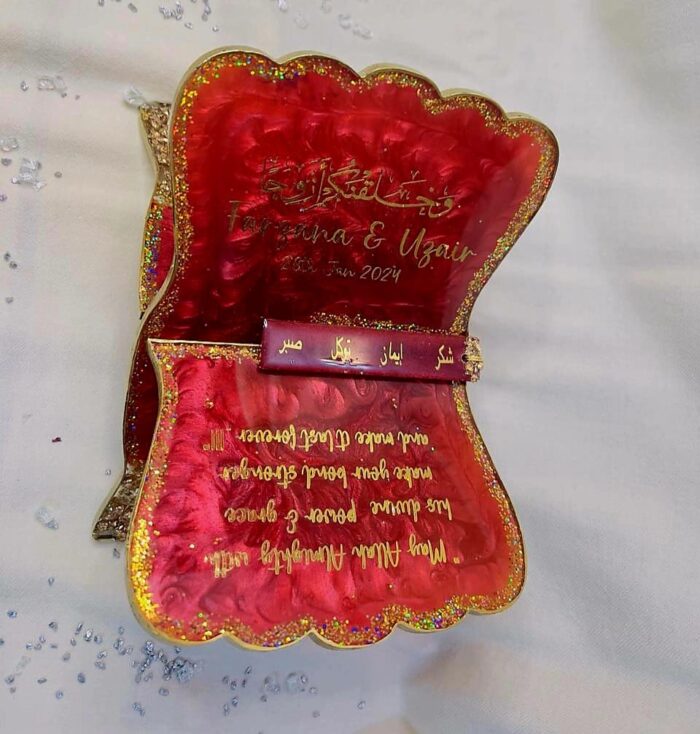 وخلقنكم أزوجا
Farzana & Uzair
28th Jan 2024
شكر إيمان توكل صبر
"May Allah Almighty with
his divine power & grace
make your bond stronger
and make it last forever !!!"